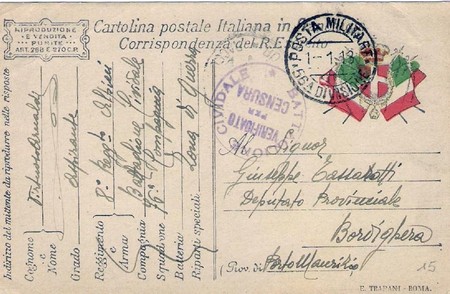 RIPRODUZIONE
E VENDITA
PUNITE
ART. 298 E 570 C.P.
Cartolina postale Italiana in
Corrispondenza del R. E
POSTA MILITARE
1-1-18
55ª DIVISIONE
BATT CIVIDALE
VERIFICATO
PER
CENSURA
Al Signor
Giuseppe
Deputato Provinciale
Bordighera
(Prov. di Porto Maurizio
15
E. TRAPANI - ROMA.
Indirizzo del mittente da riprodurre nelle risposte
Cognome
e Nome
Grado Aspirante
Reggimento 8º Regg. Alpini
e Arma
Compagnia Battaglione Cividale
Squadrone 76ª Compagnia
Batteria
Riparti speciali Zona di Guerra